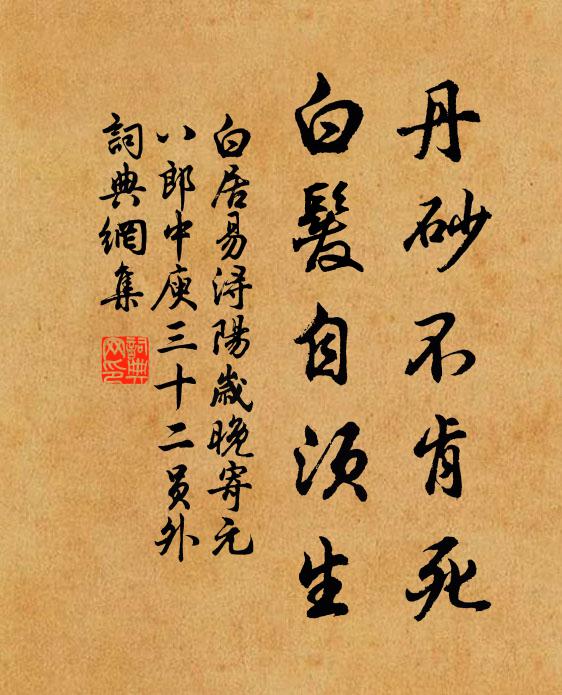 丹砂不肯死
白髮自須生
白居易潯陽歲晚寄元
八郎中庾三十二員外
詞典網集
詞典
网印